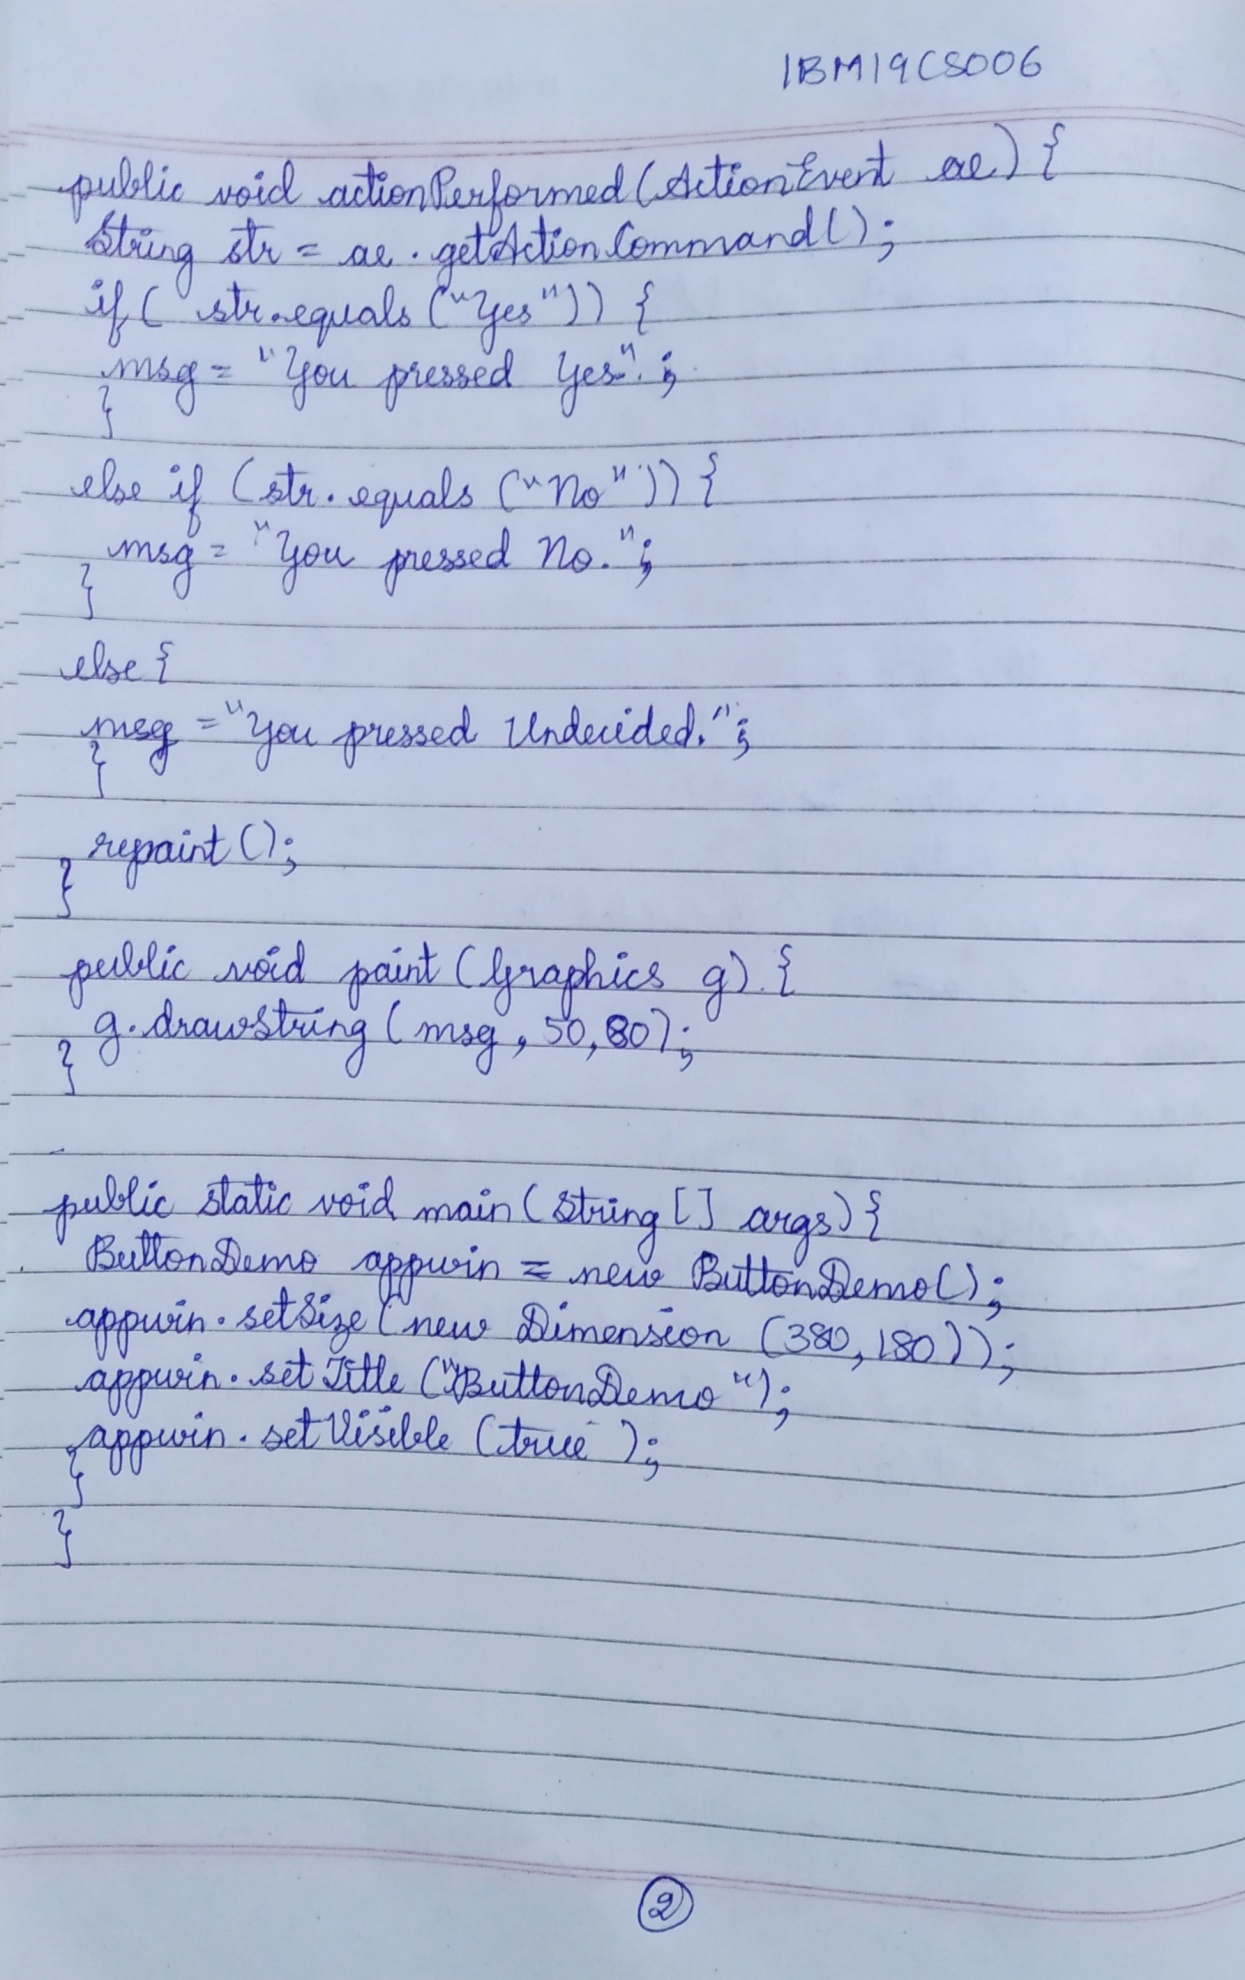 1BM19CS006
public void actionPerformed(ActionEvent ae) {
String str = ae.getActionCommand();
if( str.equals("Yes")) {
msg = "You pressed Yes".;
}
else if (str.equals("No")) {
msg = "You pressed No.";
}
else {
msg = "You pressed Undecided.";
}
repaint();
}
public void paint(Graphics g) {
g.drawString(msg, 50,80);
}
public static void main(String[] args) {
ButtonDemo appwin = new ButtonDemo();
appwin.setSize(new Dimension (380,180));
appwin.setTitle ("ButtonDemo");
appwin.setVisible (true);
}
}
2